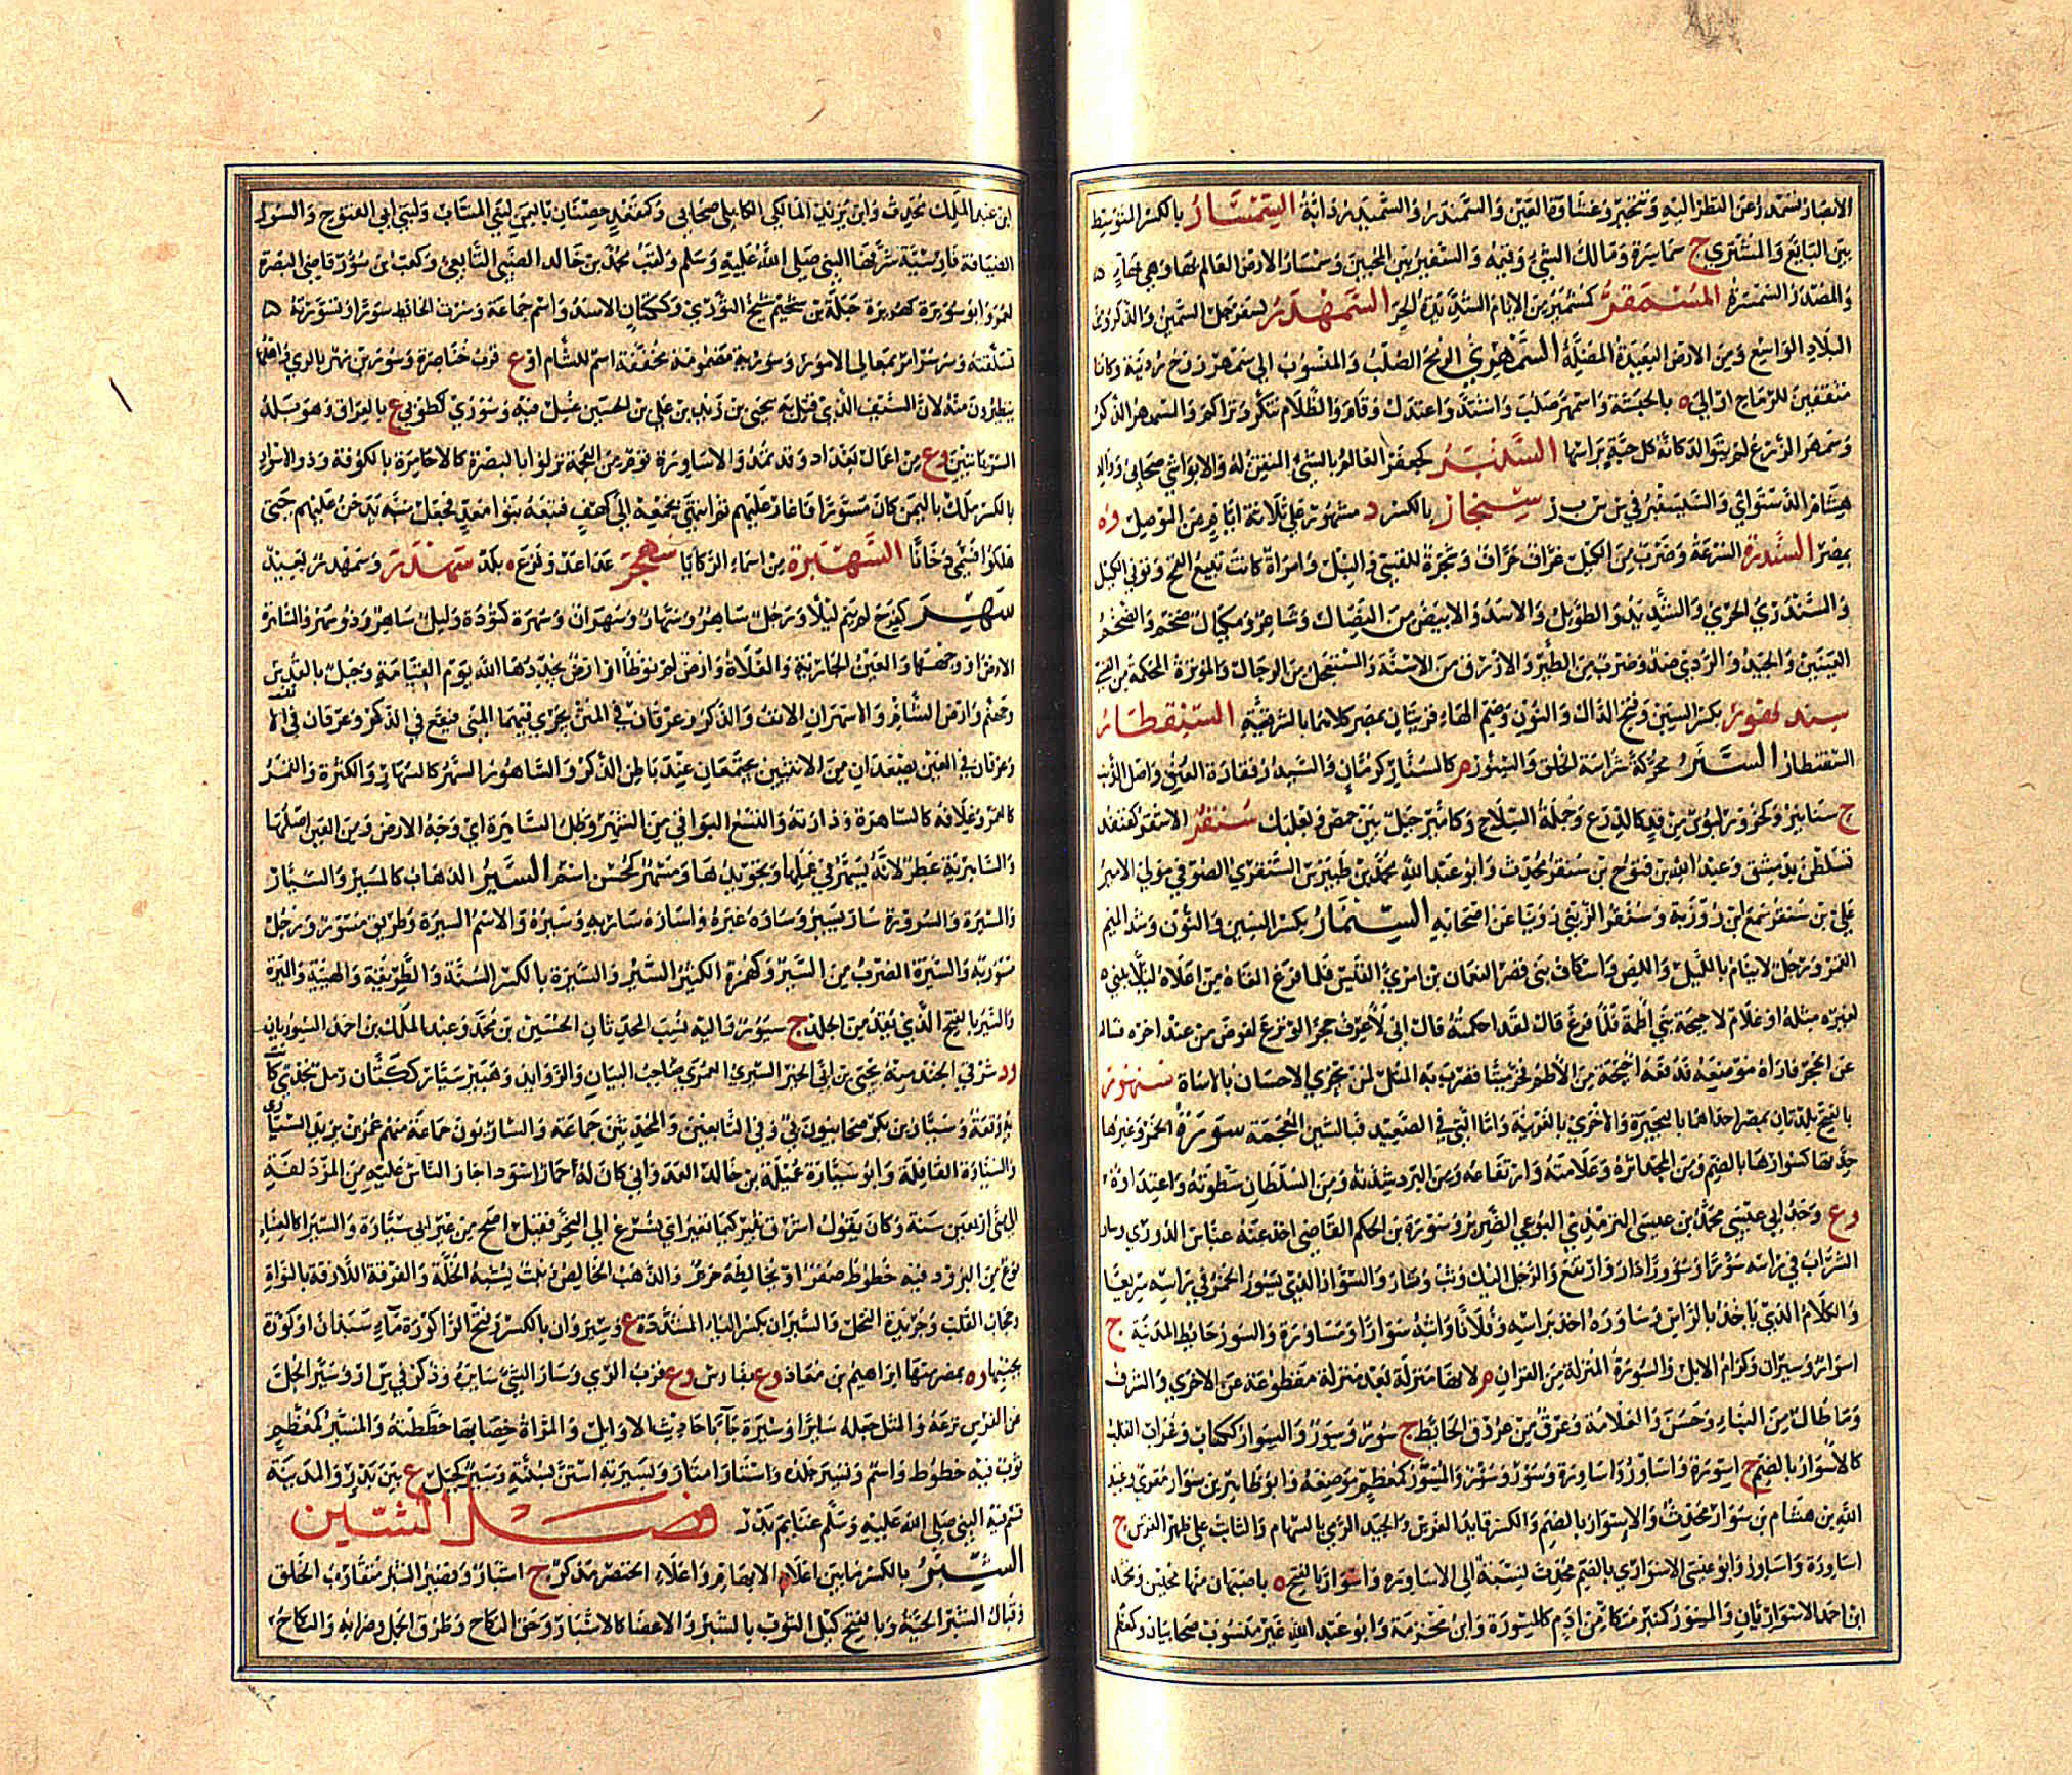 الابصار اسمدر عن النظر اليه وتحير وغشاوة العين والسمندر والسميدر دابة السِمسَارُ بالكسر المتوسط
بين البائع والمشتري ج سماسرة ومالك الشيء وقيمه والسفير بين المحبين وسمسار الارض العالم بها وهي بهاء
والمصدر السمسرة المُسْمَقِرُّ كمشمعر من الايام الشديدة الحر السَّمَهْدَرُ كسفرجل السمين والذكر ومن
البلاد الواسع ومن الارض البعيدة المضلة السَّمْهَرِيُّ الرمح الصلب والمنسوب الى سمهر زوج ردينة وكانا
مثقفين للرماح او الى ه بالحبشة واسمهر صلب واشتد واعتدل وقام والظلام تنكر وتراكم والسمهر الذكر
وسمهر الزرع لم يتوالد كانه كل حبة براسها السَّنْبَرُ كجعفر العالم بالشيء المتقن له والابواشي صحابي ووالد
هشام الدستوائي والسنبسفير في س ب ر سِنْجَارُ بالكسر د مشهور على ثلاثة ايام من الموصل وه
بمصر السَّندَرة السرعة وضرب من الكيل غراف جراف وشجرة للقسي والنبل وامراة كانت تبيع القمح وتوفي الكيل
والسندري الجري والشديد والطويل والاسد والابيض من النصال وشاعر ومكيال ضخم والضخم
العينين والجيد والردي ضد وضرب من الطير والازرق من الاسنة والمستعجل من الرجال والموترة المحكمة من القسي
سِندَنهُور بكسر السين وفتح الدال والنون وضم الهاء قريتان بمصر كلاهما بالشرقية السِّنِقْطَارُ
السقنطار السَّنَرُ محركة شراسة الخلق والسنور م كالسنار كرمان والسيد وفقارة العنق واصل الذنب
ج سنانير وكحزور لبوس من قد كالدرع وجملة السلاح وكأمير جبل بين حمص وبعلبك سُنْقُرُ الاشقر كقنفذ
تسلطن بدمشق وعبيد الله بن فتوح بن سنقر محدث وابو عبد الله محمد بن طيبرس السنقري الصوفي مولى الامير
علي بن سنقر سمع ابن روزبة وسنقر الزيني رويا عن اصحابه السِّنِمَّارُ بكسر السين والنون وشد الميم
القمر ورجل لا ينام بالليل واللص واسكاف بنى قصر النعمان بن امرئ القيس فلما فرغ القاه من اعلاه لئلا يبني
لغيره مثله او غلام لاحيحة بنى اطمه فلما فرغ قال لقد احكمته قال اني لاعرف حجرا لو نزع لتقوض من عند اخره فساله
عن الحجر فاراه موضعه فدفعه احيحة من الأطم فخر ميتا فضرب به المثل لمن يجزي الاحسان بالاساءة سَنْهُورُ
بالفتح بلدتان بمصر احداهما بالبحيرة والاخرى بالغربية واما التي في الصعيد فبالشين المعجمة سَوْرَةُ الخمر وغيرها
حدتها كسوارها بالضم ومن المجد اثره وعلامته وارتفاعه ومن البرد شدته ومن السلطان سطوته واعتداؤه
وع وجد ابي عيسى محمد بن عيسى الترمذي البوغي الضرير وسورة بن الحكم القاضي اخذ عنه عباس الدوري وسار
الشراب في راسه سؤرا وسؤورا دار وارتفع والرجل اليك وثب وثار والسوار الذي تسور الخمر في راسه سريعا
والكلام الذي ياخذ بالراس وساوره اخذ براسه وفلانا واثبه سوارا ومساورة والسور حائط المدينة ج
اسوار وسيران وكرام الابل والسورة المنزلة من القران م لانها منزلة بعد منزلة مقطوعة عن الاخرى والشرف
وما طال من البناء وحسن والعلامة وعرق من عروق الحائط ج سُوَر وسُور والسوار ككتاب وغراب القلب
كالأسوار بالضم ج اسورة واساور واساورة وسور وسؤر والمسور كمعظم موضعه وابو طاهر بن سوار مقرئ وعبيد
الله بن هشام بن سوار محدث والاسوار بالضم والكسر قائد الفرس والجيد الرمي بالسهام والثابت على ظهر الفرس ج
اساورة واساور وابو عيسى الاسواري بالضم محدث نسبة الى الاساورة واسوار بالفتح ه باصبهان منها محبسن ومحمد
ابن احمد الاسواريان والمسور كمنبر متكأ من ادم كالمسورة وابن مخرمة وابو عبد الله غير منسوب صحابيان وكمعظم
ابن عبد الملك محدث وابن يزيد المالكي الكاهلي صحابي وكقعد حصنان باليمن لبني المنتاب ولبني ابي الفتوح والسور
الضيافة فارسية شرفها النبي صلى الله عليه وسلم ولقب محمد بن خالد الضبي التابعي وكعب بن سور قاضي البصرة
لعمر وابو سويرة كهريرة جبلة بن سحيم شيخ الثوري وككتان الاسد واسم جماعة وسرت الحائط سورا وتسورته
تسلقته وسر سر امر بمعالي الامور وسورية مضمومة مخففة اسم للشام او ع قرب خناصرة وسورين نهر بالري واهلها
يتطيرون منه لان السيف الذي قتل به يحيى بن زيد بن علي بن الحسين غسل فيه وسورى كطوبى ع بالعراق وهو بلد
السريانيين وع من اعمال بغداد وقد تمد والاساورة قوم من العجم نزلوا بالبصرة كالاحامرة بالكوفة وذو الاسوار
بالكسر ملك باليمن كان مسورا فاغار عليهم ثم انتهى بجمعه الى كهف فتبعه بنو معد فجعل منبه يدخن عليهم حتى
هلكوا فسمي دخانا السَّهْبَرَةُ من اسماء الركايا سَهْجَرَ عدا عدو فزع ه بلد سَهْنْدَر وسمهدر بعيد
سَهِرَ كفرح لم ينم ليلا ورجل ساهر وسهار وسهران وسهرة كتؤدة وليل ساهر وذو سهر والساهرة
الارض او وجهها والعين الجارية والفلاة وارض لم توطأ او ارض يجددها الله يوم القيامة وجبل بالقدس
وجهنم وارض الشام والاسهران الانف والذكر وعرقان في المتن يجري فيهما المني فيقع في الذكر وعرقان في الانف
وعرقان في العين يصعدان من الانثيين يجتمعان عند باطن الذكر والساهور السهر كالسهار والكثرة والقمر
كالقمر وغلافه كالساهرة ودارته والتسع البواقي من الشهر وظل الساهرة اي وجه الارض ومن العين اصلها
والساهرية عطر لانه يسهر في عملها وتجويدها ومسهر كمحسن اسم السَّيْرُ الذهاب كالمسير والتسيار
والمسيرة والسيرورة سار يسير وساره غيره واساره ساربه وسيره والاسم السيرة وطريق مسور ورجل
مسور به والسيرة الضرب من السير وكهمزة الكثير السير والسيرة بالكسر السنة والطريقة والهيئة والميرة
والسير بالفتح الذي يقد من الجلد ج سيور واليه نسب المحدثان الحسين بن محمد وعبد الملك بن احمد السيوريان
ود شرقي الجند منه يحيى بن ابي الخير السيري العمري صاحب البيان والزوائد وهبير سيار ككتان رمل نجدي كا
بئر وقعة وسيار بن بكر صحابيون وفي التابعين والمحدثين جماعة والسياريون جماعة منهم عمر بن يزيد السياري
والسيارة القافلة وابو سيارة عميلة بن خالد العدواني كان له حمار اسود اجاز الناس عليه من المزدلفة
الى منى اربعين سنة وكان يقول اشرق ثبير كيما نغير اي نسرع الى النحر فقيل اصح من عير ابي سيارة والسيرا كالعنباء
نوع من البرود فيه خطوط صفر او يخالطه حرير والذهب الخالص ونبت يشبه الخلة والقرفة اللازقة بالنواة
وحجاب القلب وجريدة النخل والسيران بكسر الياء المشددة ع وسيروان بالكسر وفتح الراء كورة ماسبذان او كورة
بجنبها وه بمصر منها ابراهيم بن معاذ وع بفارس وع قرب الري وسار الشيء سائره وذكر في س ا ر وسير الجل
عن الفرس نزعه والمثل جعله سائرا وسيرة جاء باحاديث الاوائل والمراة خضابها خططته والمسير كمعظم
ثوب فيه خطوط واسم وتسير جلده واستار امتار وبسيرته استن بسنته وسير كجبل ع بين بدر والمدينة
قسم فيه النبي صلى الله عليه وسلم غنائم بدر فصل الشين
الشِّبْرُ بالكسر ما بين اعلا الابهام واعلاء الخنصر مذكر ج اشبار وقصير الشبر متقارب الخلق
وقبال الشبر الحية وبالفتح كيل الثوب بالشبر والاعطاء كالاشبار وحق النكاح وطرق الجمل وضرابه والنكاح